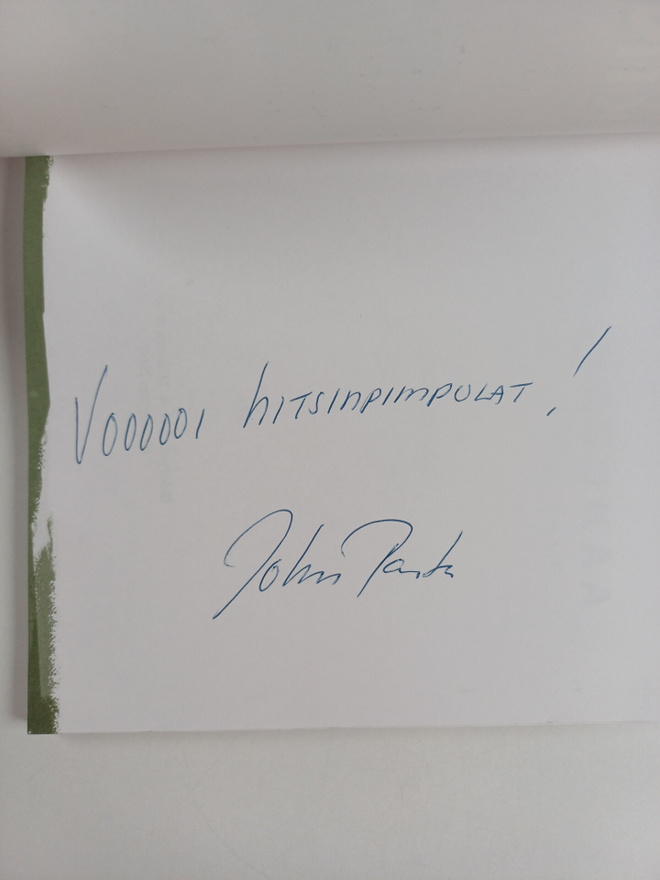 VOOOOOI HITSINPIMPULAT!
John